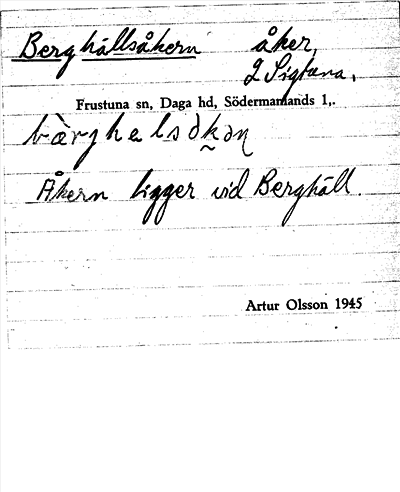 Berghällsåkern åker,
Frustuna sn, Daga hd, Södermanlands l,.
Åkern ligger vid Berghäll.
Artur Olsson 1945